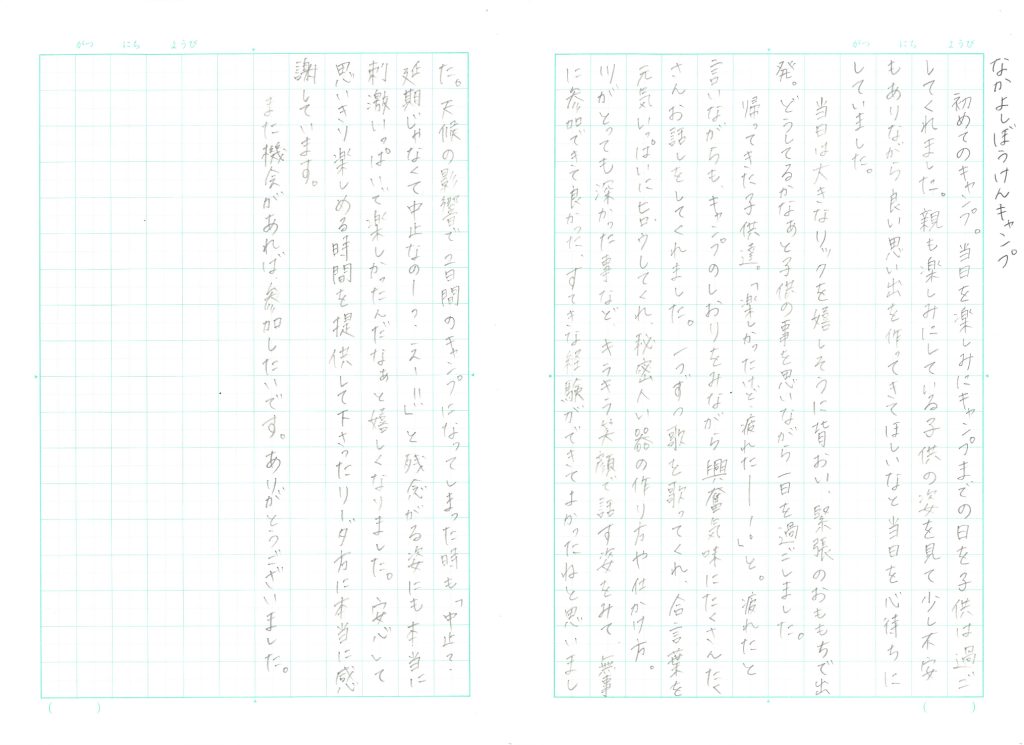 なかよしぼうけんキャンプ
がつ にち ようび
初めてのキャンプ。当日を楽しみにキャンプまでの日を子供は過ご
してくれました。親も楽しみにしている子供の姿を見て少し不安
もありながら良い思い出を作ってきてほしいなと当日を心待ちに
していました。
当日は大きなリックを嬉しそうに背おい、緊張のおももちで出
発。どうしてるかなぁと子供の事を思いながら一日を過ごしました。
帰ってきた子供達。「楽しかったけど疲れたーー!。」と。疲れたと
言いながらも、キャンプのしおりをみながら興奮気味にたくさんたく
さんお話しをしてくれました。一つずつ歌を歌ってくれ、合言葉を
元気いっぱいにヒロウしてくれ、秘密入い器の作り方や仕かけ方。
川がとっても深かった事など、キラキラ笑顔で話す姿をみて、無事
に参加できて良かった、すてきな経験ができてよかったねと思いまし
( )
がつ にち ようび
た。天候の影響で2日間のキャンプになってしまった時も「中止?
延期じゃなくて中止なのー?えー!!」と残念がる姿にも本当に
刺激いっぱいで楽しかったんだなぁと嬉しくなりました。安心して
思いきり楽しめる時間を提供して下さったリーダ方に本当に感
謝しています。
また機会があれば、参加したいです。ありがとうございました。
( )